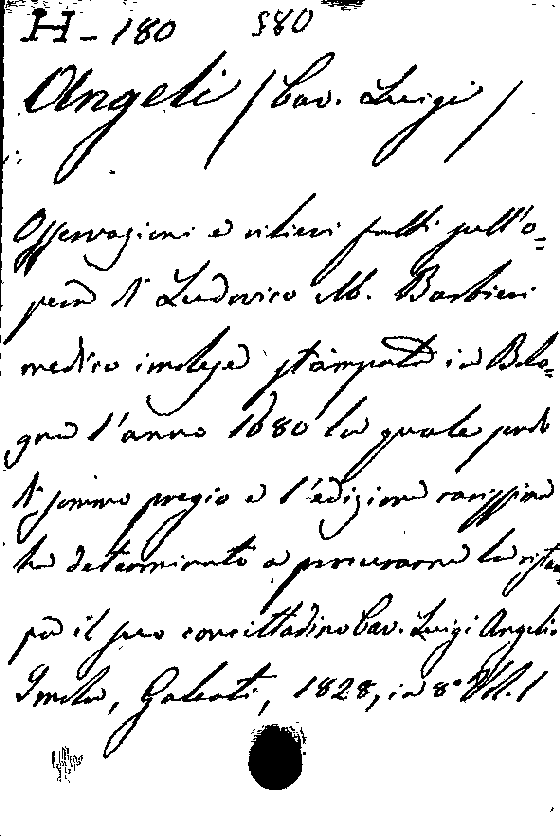 H - 180 580
Angeli / Cav. Luigi /
Osservazioni e rilievi fatti sull'o=
pera di Ludovico M. Barbieri
medico imolese stampata in Bolo=
gna l'anno 1680 la quale
di sommo pregio e l'edizione rarissima
ha determinato a procurarne la
per il suo concittadino Cav. Luigi Angeli.
Imola, Galeati, 1828, in 8° Vol. 1